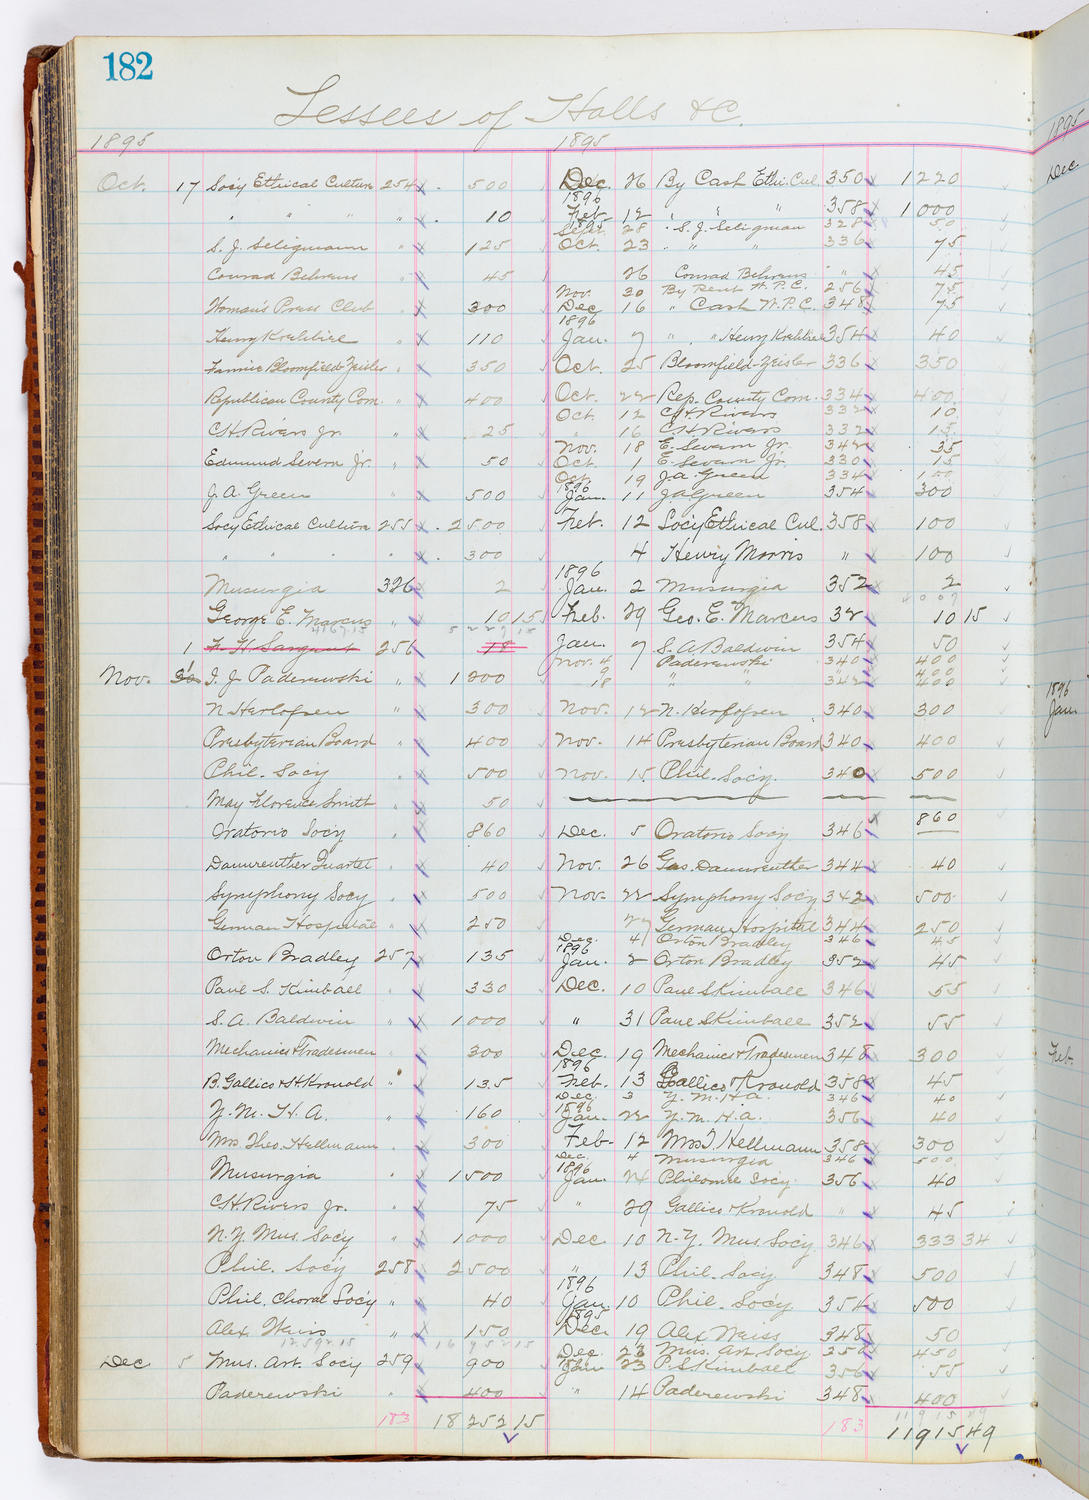 182
Lessees of Halls &C.
1895 1895
Oct. 17 Socy Ethical Culture 254 500 Dec. 26 By Cash Ethi. Cul. 350 1220
1896
" " " " 10 Feb. 12 " " " 358 1000
1895
Sept. 28 " S. J. Seligman 328 50
S. J. Seligmann " 125 Oct. 23 " " " 336 75
Conrad Behrens " 45 26 Conrad Behrens " 45
Nov. 30 By Rent W. P. C. 256 75
Woman's Press Club " 300 Dec 16 " Cash W. P. C. 348 75
1896
Henry Kochlire " 110 Jan. 7 " " Henry Kochlire 354 40
Fannie Bloomfield-Zeisler " 350 Oct. 25 Bloomfield-Zeisler 336 350
Republican County Com. " 400 Oct. 22 Rep. County Com. 334 400
Oct. 12 C. H. Rivers 332 10
C H Rivers Jr. " 25 " 16 C H Rivers 332 15
Nov. 18 E. Severn Jr. 342 35
Edmund Severn Jr. " 50 Oct. 1 E. Severn Jr. 330 15
Oct. 19 J. A. Green 334
1896
J. A. Green " 500 Jan. 11 J. A. Green 354 300
Socy Ethical Culture 255 2500 Feb. 12 Socy Ethical Cul. 358 100
" " " " 300 4 Henry Morris " 100
1896
Musurgia 326 2 Jan. 2 Musurgia 352 2
George E. Marcus " 10 15 Feb. 29 Geo. E. Marcus 32 10 15
1 F. H. Sargent 256 18 Jan. 7 S. A. Baldwin 354 50
Nov. 4 Paderewski 340 400
9 " " " 400
Nov. 1 I. J. Paderewski " 1200 18 " " 342 400
N. Herlofsen " 300 Nov. 12 N. Herlofsen 340 300
Presbyterian Board " 400 Nov. 14 Presbyterian Board 340 400
Phil. Socy " 500 Nov. 15 Phil. Socy. 340 500
May Florence Smith " 50
Oratorio Socy " 860 Dec. 5 Oratorio Socy 346 860
Dannreuther Quartet " 40 Nov. 26 Gus. Dannreuther 344 40
Symphony Socy " 500 Nov. 22 Symphony Socy 342 500
German Hospital " 250 27 German Hospital 344 250
Dec. 4 Orton Bradley 346 45
1896
Orton Bradley 257 135 Jan. 2 Orton Bradley 352 45
Paul S. Kimball " 330 Dec. 10 Paul S Kimball 346 55
S. A. Baldwin " 1000 " 31 Paul S Kimball 352 55
Mechanics & Tradesmen " 300 Dec. 19 Mechanics & Tradesmen 348 300
1896
B. Gallico & H Kronold " 135 Feb. 13 Gallico & Kronold 358 45
Dec. 3 Y. M. H. A. 346 40
1896
Y. M. H. A. " 160 Jan. 22 Y. M. H. A. 356 40
Mrs. Theo. Hellmann " 300 Feb. 12 Mrs T Hellmann 358 300
Dec. 4 Musurgia 346 500
1896
Musurgia " 1500 Jan. 24 Philomele Socy. 356 40
C H Rivers Jr. " 75 " 29 Gallico & Kronold " 45
N. Y. Mus. Socy " 1000 Dec 10 N. Y. Mus. Socy. 346 333 34
Phil. Socy 258 2500 " 13 Phil. Socy 348 500
1896
Phil. Choral Socy " 40 Jan. 10 Phil. Socy 354 500
1895
Alex. Weiss " 150 Dec. 19 Alex Weiss 348 50
Dec. 23 Mus. Art. Socy 450
Dec 5 Mus. Art. Socy 259 900 Jan 23 P. S Kimball 356 55
Paderewski " 400 " 14 Paderewski 348 400
183 18252 15 183 11915 49
1895
Dec
1896
Jan
Feb.